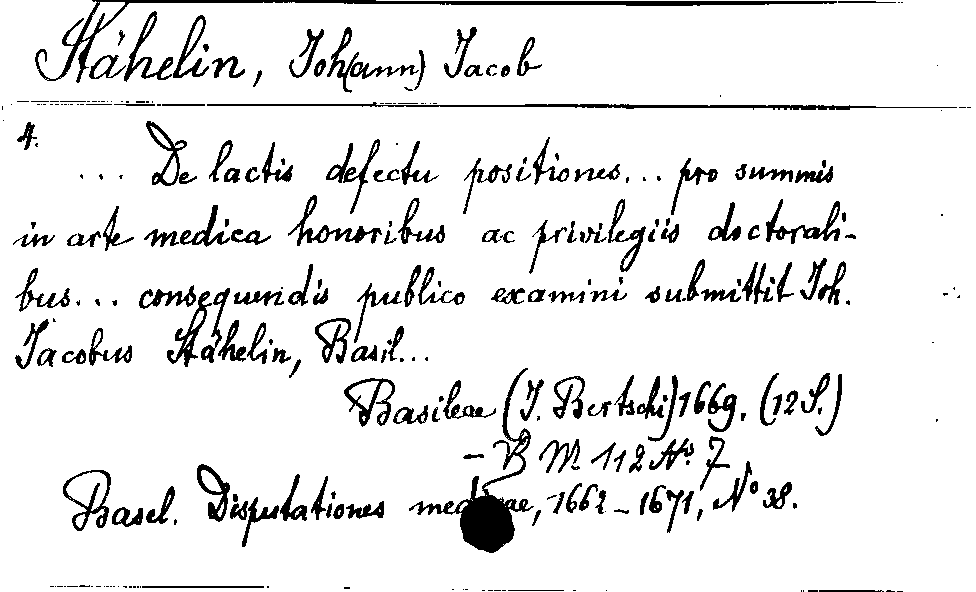 Stähelin, Joh(ann) Jacob
4.
... De lactis defectu positiones... pro summis
in arte medica honoribus ac privilegiis doctorali-
bus... consequendis publico examini submittit Joh.
Jacobus Stähelin, Basil...
Basileae (J. Bertschi) 1669. (12 S.)
- B M 112 No. 7
Basel. Disputationes medicae, 1662-1671, No 38.